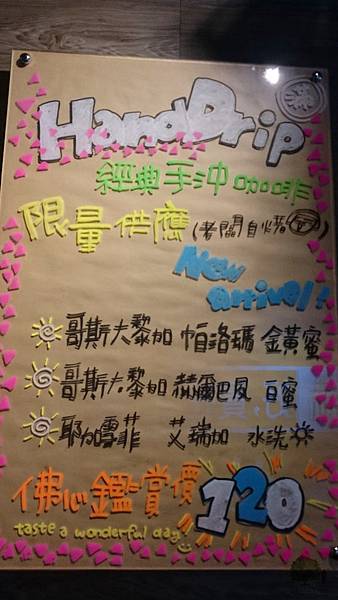 Hand Drip
經典手沖咖啡
限量供應 (老闆自燒
New
arrival!
哥斯大黎加 帕洛瑪 金黃蜜
哥斯大黎加 赫爾巴夙 白蜜
耶加雪菲 艾瑞加 水洗
佛心鑑賞價 120
taste a wonderful day!